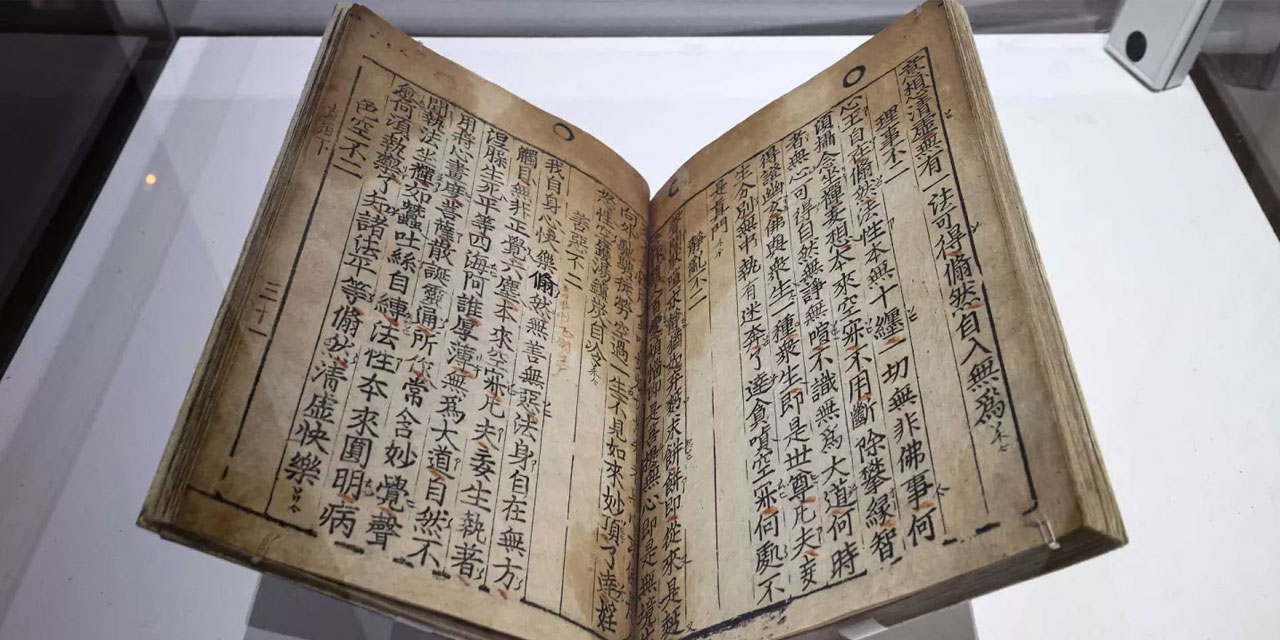 意想清虛無有一法可得翛然自入無爲
理事不二
心王自在翛然法性本無十纏一切無非佛事何
須攝念坐禪妄想本來空寂不用斷除攀緣智
者無心可得自然無諍無喧不識無爲大道何時
得證幽玄佛與衆生一種衆生即是世尊凡夫妄
生分別無中執有迷奔了達貪嗔空寂何處不
是眞門
靜亂不二
聲聞厭喧求靜猶如弃麵求餠餠即從來是麵
煩惱即是菩提無心即是無境生
向外馳騁疲勞空過一生不見如來妙頂了達婬
怒性空鑊湯鑪炭自冷
善惡不二
我自身心快樂翛然無善無惡法身自在無方
觸目無非正覺六塵本來空寂凡夫妄生執著
涅槃生死平等四海阿誰厚薄無爲大道自然不
用將心畫度菩薩散誕靈通所作常含妙覺聲
聞執法坐禪如蠶吐絲自縛法性本來圓明病
愈何須執藥了知諸法平等翛然清虛快樂
色空不二
直指下 三十一